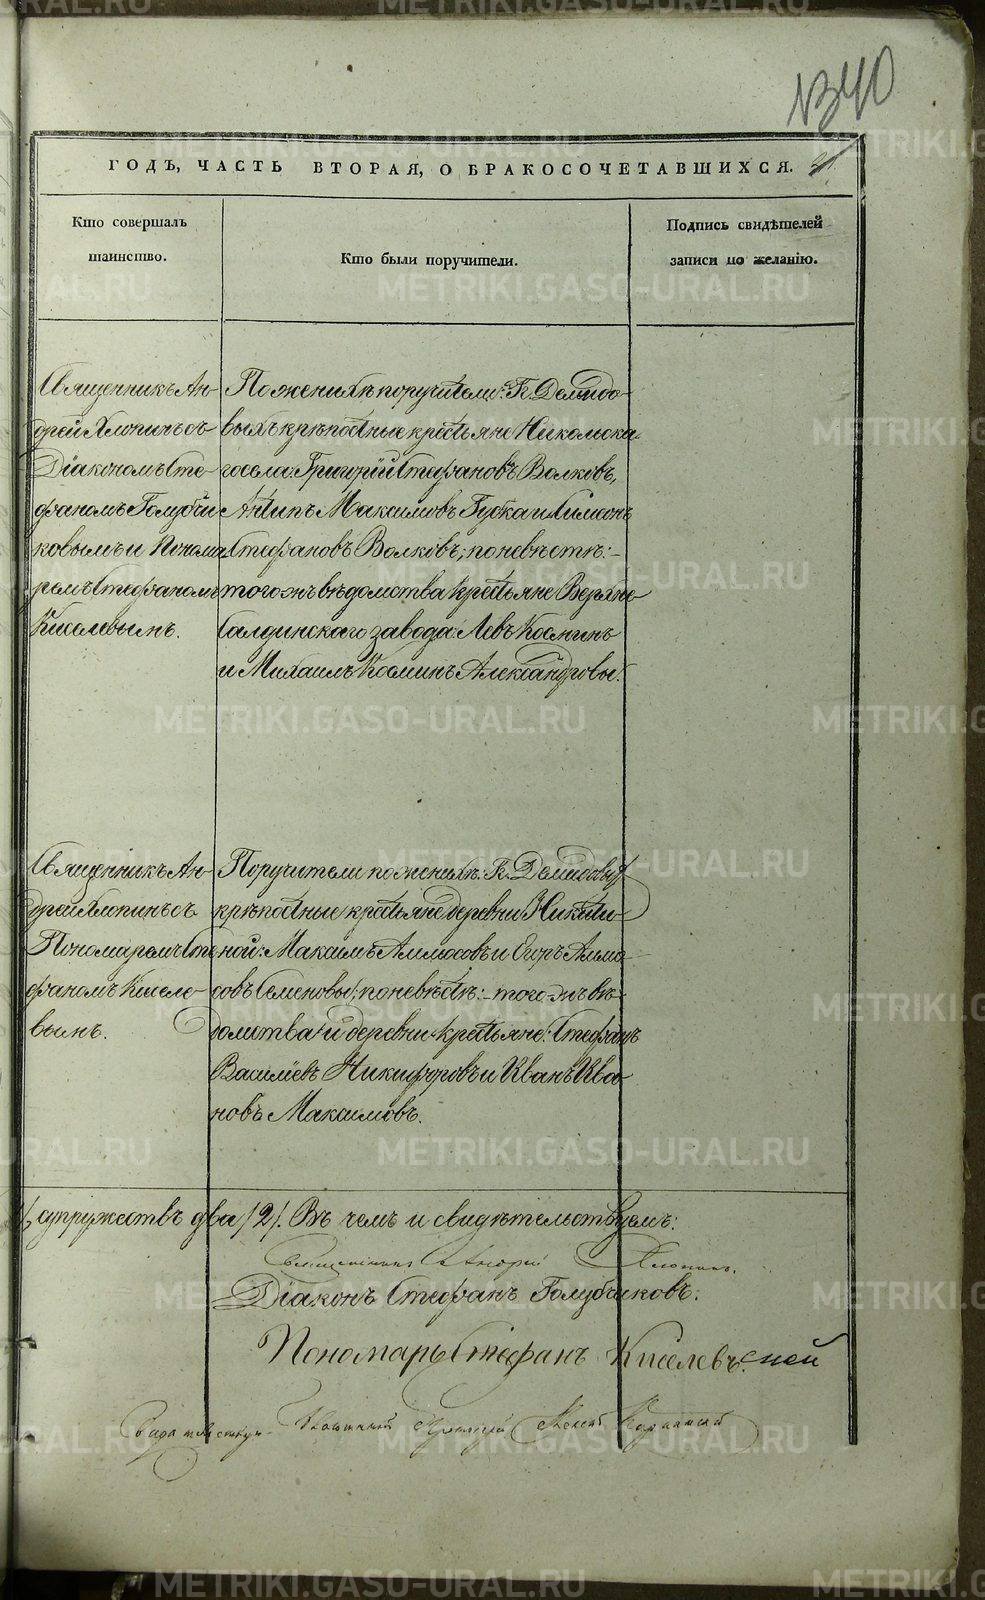 1340
ГОДЪ, ЧАСТЬ ВТОРАЯ, О БРАКОСОЧЕТАВШИХСЯ.
Кто совершалъ таинство.
Кто были поручители.
Подпись свидѣтелей записи по желанію.
Священникъ Ан-
дрей Хлопинъ съ
Діакономъ Сте-
фаномъ Голубчи
ковымъ и Понома
ремъ Стефаномъ
Киселевымъ.
По женихѣ поручители: Гг. Демидо-
выхъ крѣпостные крестьяне Никольска-
го села: Григорій Стефановъ Волковъ,
Антипъ Максимовъ Губка и Симеонъ
Стефановъ Волковъ; по невѣстѣ: -
того жъ вѣдомства крестьяне Верхне
Салдинскаго завода: Левъ Косминъ
и Михаилъ Косминъ Александровы.
Священникъ Ан-
дрей Хлопинъ съ
Пономаремъ Сте
фаномъ Киселе-
вымъ.
Поручители по женихѣ: Гг. Демидовыхъ
крѣпостные крестьяне деревни Никити-
ной: Максимъ Амосовъ и Егоръ Аммо-
совъ Семеновы; по невѣстѣ: - того жъ вѣ-
домства и деревни крестьяне: Стефанъ
Василіевъ Никифоровъ и Иванъ Ива-
новъ Максимовъ.
супружествъ два /2/. Въ чемъ и свидѣтельствуемъ:
Священникъ Андрей Хлопинъ.
Діаконъ Стефанъ Голубчиковъ.
Пономарь Стефанъ Киселевъ.
METRIKI.GASO-URAL.RU